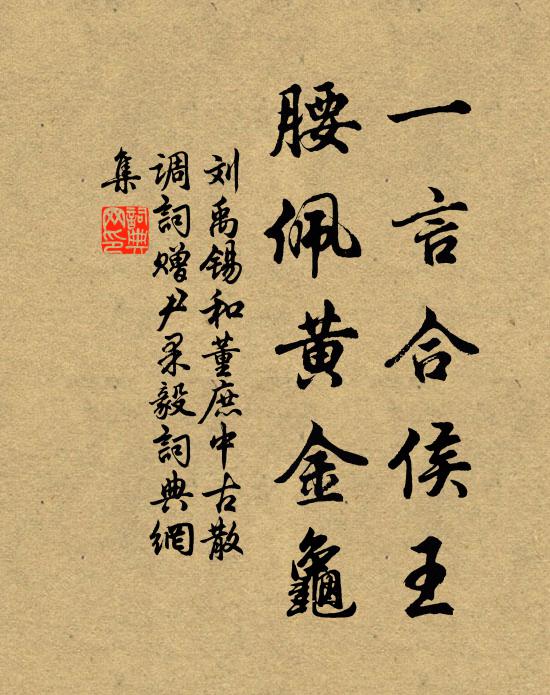 一言合侯王
腰佩黄金龜
刘禹锡和董庶中古散
调詞赠尹果毅詞典網
集
詞典網印